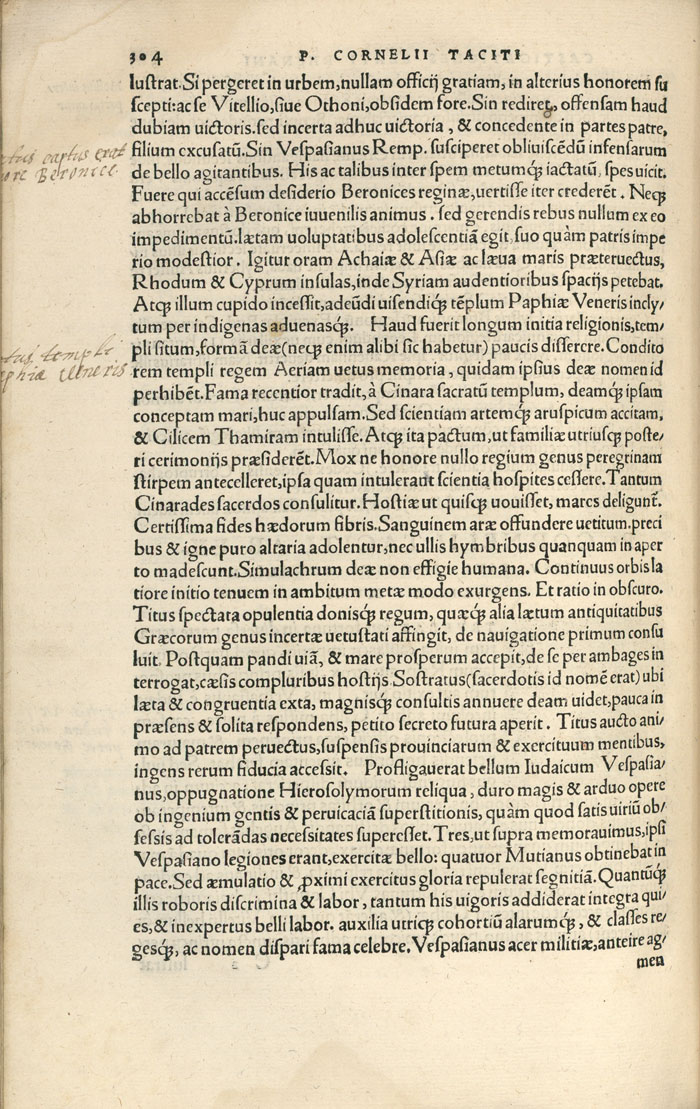 304 P. CORNELII TACITI
lustrat. Si pergeret in urbem, nullam officij gratiam, in alterius honorem su
scepti: ac se Vitellio, siue Othoni, obsidem fore. Sin rediret, offensam haud
dubiam uictoris. sed incerta adhuc uictoria, & concedente in partes patre,
filium excusatū. Sin Vespasianus Remp. susciperet obliuiscēdū infensarum
de bello agitantibus. His ac talibus inter spem metumq́ꝫ iactatū, spes uicit.
Fuere qui accēsum desiderio Beronices reginæ, uertisse iter crederēt. Neqꝫ
abhorrebat à Beronice iuuenilis animus. sed gerendis rebus nullum ex eo
impedimentū. Lætam uoluptatibus adolescentiā egit, suo quàm patris impe
rio modestior. Igitur oram Achaiæ & Asiæ ac læua maris præteruectus,
Rhodum & Cyprum insulas, inde Syriam audentioribus spacijs petebat.
Atqꝫ illum cupido incessit, adeūdi uisendiq́ꝫ tēplum Paphiæ Veneris incly/
tum per indigenas aduenasq́ꝫ. Haud fuerit longum initia religionis, tem/
pli situm, formā deæ (neqꝫ enim alibi sic habetur) paucis disserere. Condito
rem templi regem Aeriam uetus memoria, quidam ipsius deæ nomen id
perhibēt. Fama recentior tradit, à Cinara sacratū templum, deamq́ꝫ ipsam
conceptam mari, huc appulsam. Sed scientiam artemq́ꝫ aruspicum accitam,
& Cilicem Thamiram intulisse. Atqꝫ ita pactum, ut familiæ utriusqꝫ poste/
ri cerimonijs præsiderēt. Mox ne honore nullo regium genus peregrinam
stirpem antecelleret, ipsa quam intulerant scientia hospites cessere. Tantum
Cinarades sacerdos consulitur. Hostiæ ut quisqꝫ uouisset, mares deligunt̃.
Certissima fides hædorum fibris. Sanguinem aræ offundere uetitum. preci
bus & igne puro altaria adolentur, nec ullis hymbribus quanquam in aper
to madescunt. Simulachrum deæ non effigie humana. Continuus orbis la
tiore initio tenuem in ambitum metæ modo exurgens. Et ratio in obscuro.
Titus spectata opulentia donisq́ꝫ regum, quæq́ꝫ alia lætum antiquitatibus
Græcorum genus incertæ uetustati affingit, de nauigatione primum consu
luit. Postquam pandi uiā, & mare prosperum accepit, de se per ambages in
terrogat, cæsis compluribus hostijs. Sostratus (sacerdotis id nomē erat) ubi
læta & congruentia exta, magnisq́ꝫ consultis annuere deam uidet, pauca in
præsens & solita respondens, petito secreto futura aperit. Titus aucto ani/
mo ad patrem peruectus, suspensis prouinciarum & exercituum mentibus,
ingens rerum fiducia accessit. Profligauerat bellum Iudaicum Vespasia/
nus, oppugnatione Hierosolymorum reliqua, duro magis & arduo opere
ob ingenium gentis & peruicaciā superstitionis, quàm quod satis uiriū ob/
sessis ad tolerādas necessitates superesset. Tres, ut supra memorauimus, ipsi
Vespasiano legiones erant, exercitæ bello: quatuor Mutianus obtinebat in
pace. Sed æmulatio & ꝓximi exercitus gloria repulerat segnitiā. Quantūq́ꝫ
illis roboris discrimina & labor, tantum his uigoris addiderat integra qui/
es, & inexpertus belli labor. auxilia utriqꝫ cohortiū alarumq́ꝫ, & classes re/
gesq́ꝫ, ac nomen dispari fama celebre. Vespasianus acer militiæ, anteire ag/
men
captus erat
Beronice
templi
Veneris